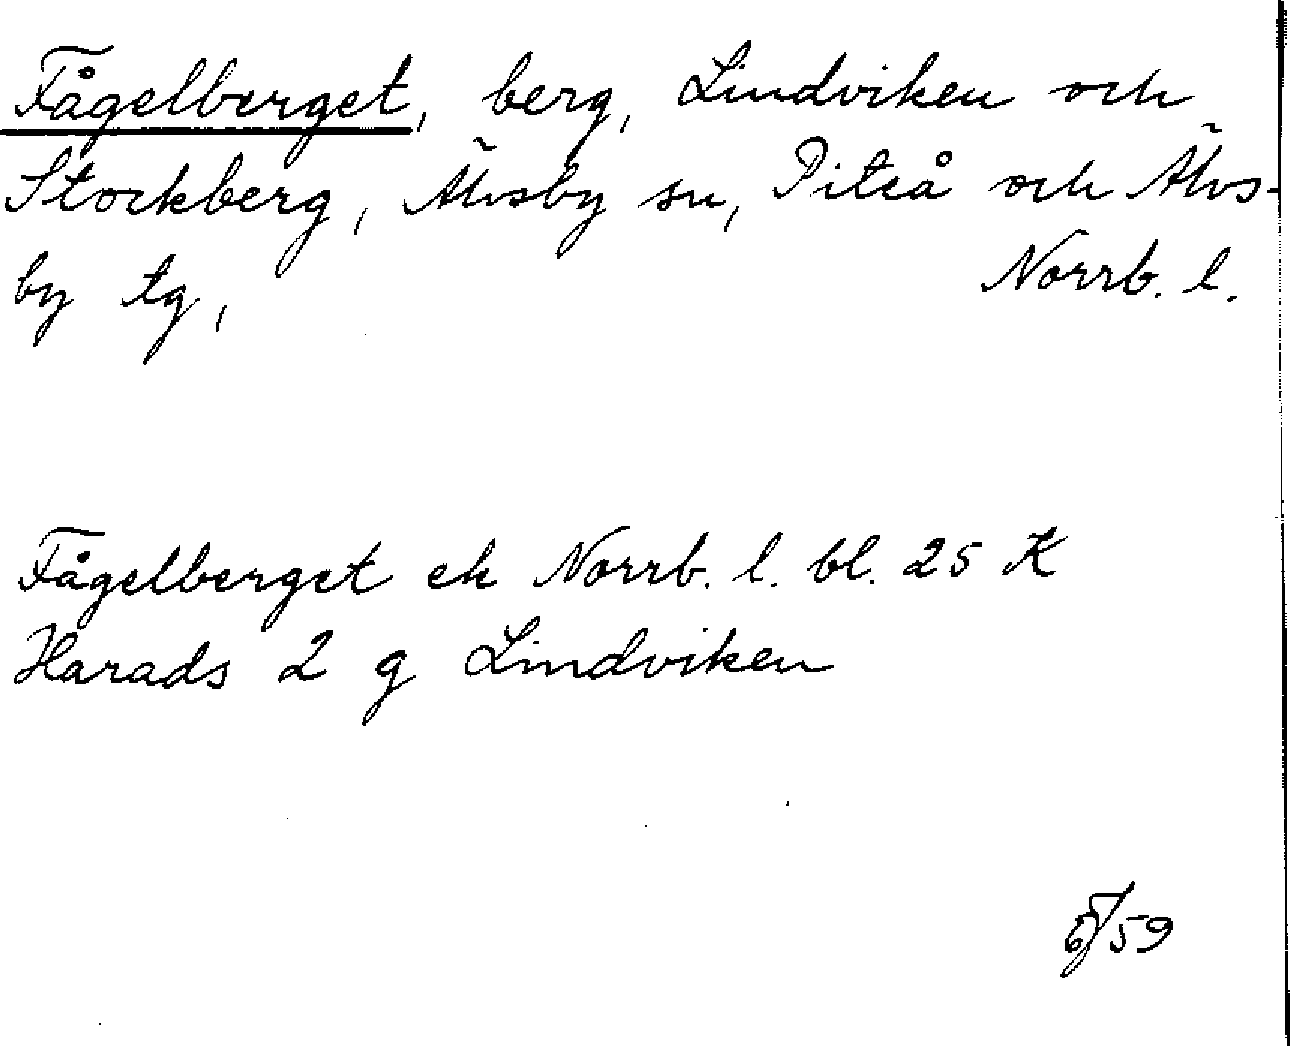 Fågelberget, berg, Lindviken och
Stockberg, Älvsby sn, Piteå och Älvs-
by tg, Norrb. l.
Fågelberget ek Norrb. l. bl. 25 K
Harads 2 g Lindviken
/59